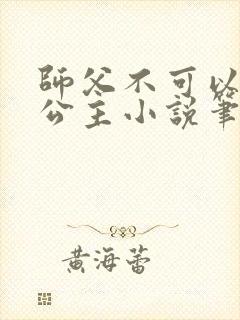 師父不可以
公主小說筆
黃海蕾